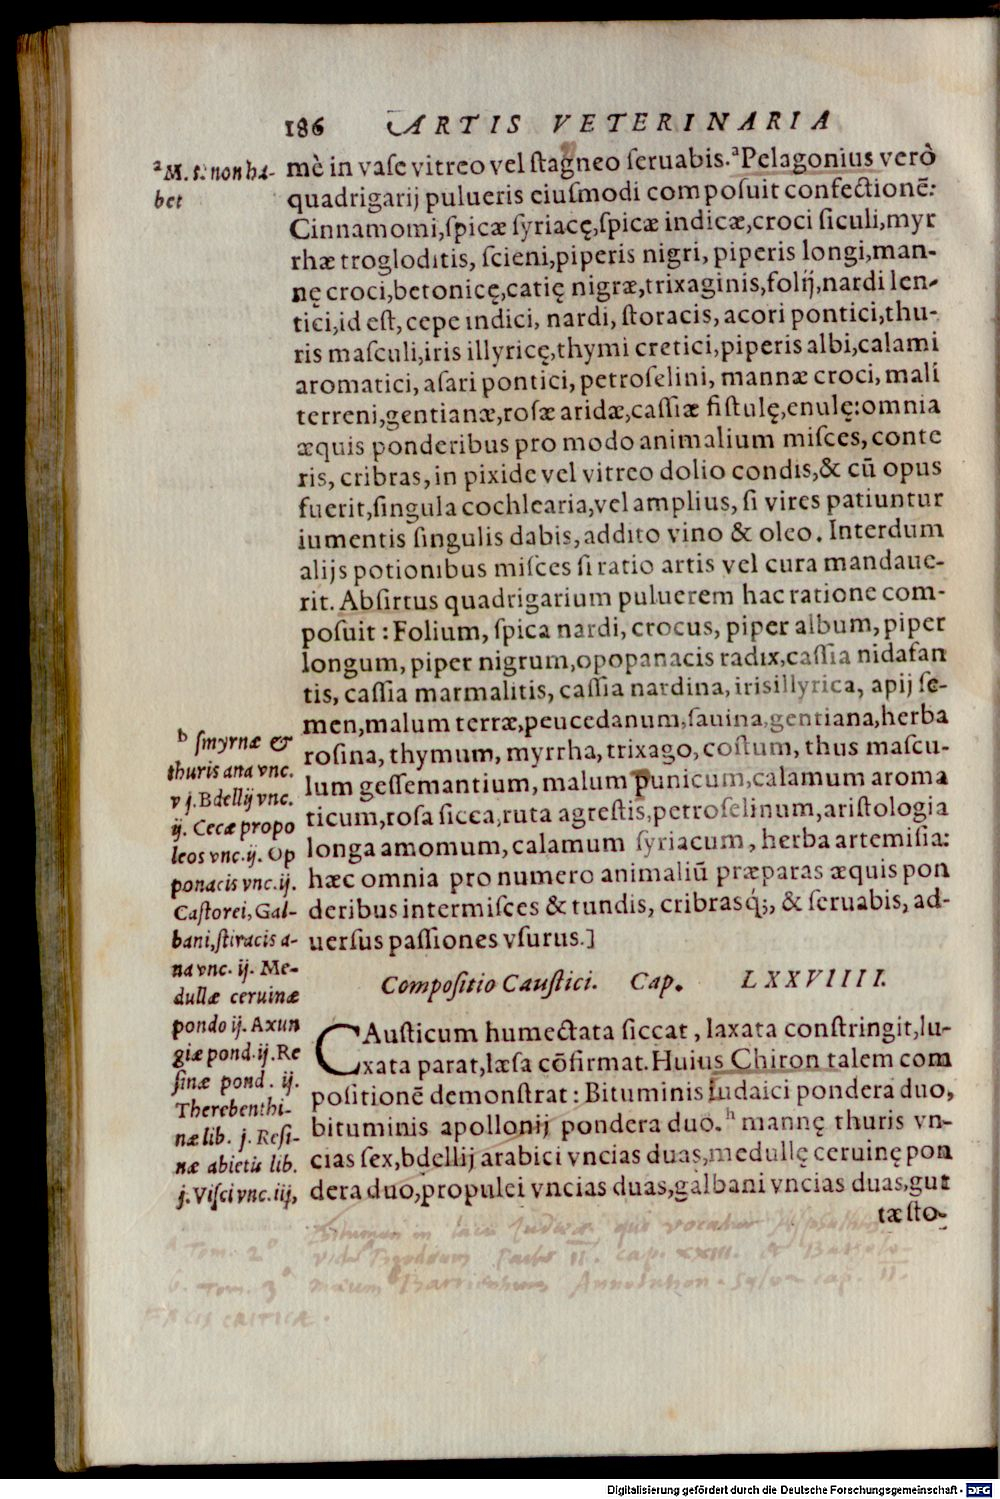 186 ARTIS VETERINARIA
ᵃM. s. non ha-
bet
mè in vaſe vitreo vel ſtagneo ſeruabis.ᵃPelagonius verò
quadrigarij pulueris eiuſmodi compoſuit confectionē:
Cinnamomi,ſpicæ ſyriacę,ſpicæ indicæ,croci ſiculi,myr
rhæ trogloditis, ſcieni,piperis nigri, piperis longi,man-
nę croci,betonicę,catię nigræ,trixaginis,folij,nardi len-
tici,id eſt, cepe indici, nardi, ſtoracis, acori pontici,thu-
ris maſculi,iris illyricę,thymi cretici,piperis albi,calami
aromatici, aſari pontici, petroſelini, mannæ croci, mali
terreni,gentianæ,roſæ aridæ,caſſiæ fiſtulę,enulę:omnia
æquis ponderibus pro modo animalium miſces, conte
ris, cribras, in pixide vel vitreo dolio condis,& cū opus
fuerit,ſingula cochlearia,vel amplius, ſi vires patiuntur
iumentis ſingulis dabis, addito vino & oleo. Interdum
alijs potionibus miſces ſi ratio artis vel cura mandaue-
rit. Abſirtus quadrigarium puluerem hac ratione com-
poſuit : Folium, ſpica nardi, crocus, piper album, piper
longum, piper nigrum,opopanacis radix,caſſia nidafan
tis, caſſia marmalitis, caſſia nardina, iris illyrica, apij ſe-
men,malum terræ,peucedanum,ſauina,gentiana,herba
roſina, thymum, myrrha, trixago, coſtum, thus maſcu-
lum geſſemantium, malum punicum,calamum aroma
ticum,roſa ſicca,ruta agreſtis,petroſelinum,ariſtologia
longa amomum, calamum ſyriacum, herba artemiſia:
hæc omnia pro numero animaliū præparas æquis pon
deribus intermiſces & tundis, cribrasq́;, & ſeruabis, ad-
uerſus paſſiones vſurus.]
ᵇ ſmyrnæ &
thuris ana vnc.
v j. Bdellij vnc.
ij. Cecæ propo
leos vnc. ij. Op
ponacis vnc. ij.
Caſtorei, Gal-
bani,ſtiracis a-
na vnc. ij. Me-
dullæ ceruinæ
pondo ij. Axun
giæ pond. ij. Re
ſinæ pond. ij.
Therebenthi-
næ lib. j. Reſi-
næ abietis lib.
j. Viſci vnc. iij,
Compoſitio Cauſtici. Cap. LXXVIIII.
CAuſticum humectata ſiccat, laxata conſtringit,lu-
xata parat,læſa cōfirmat. Huius Chiron talem com
poſitionē demonſtrat : Bituminis Iudaici pondera duo,
bituminis apollonij pondera duo.ʰ mannę thuris vn-
cias ſex,bdellij arabici vncias duas,medullę ceruinę pon
dera duo,propulei vncias duas,galbani vncias duas,gut
tæ ſto-
Bitumen in lacu Iudææ qui vocatur
a Tom. 2º cap. XXIII.
b. Tom. 3º cap. II.
FACIS CRITICÆ.
Digitalisierung gefördert durch die Deutsche Forschungsgemeinschaft - DFG